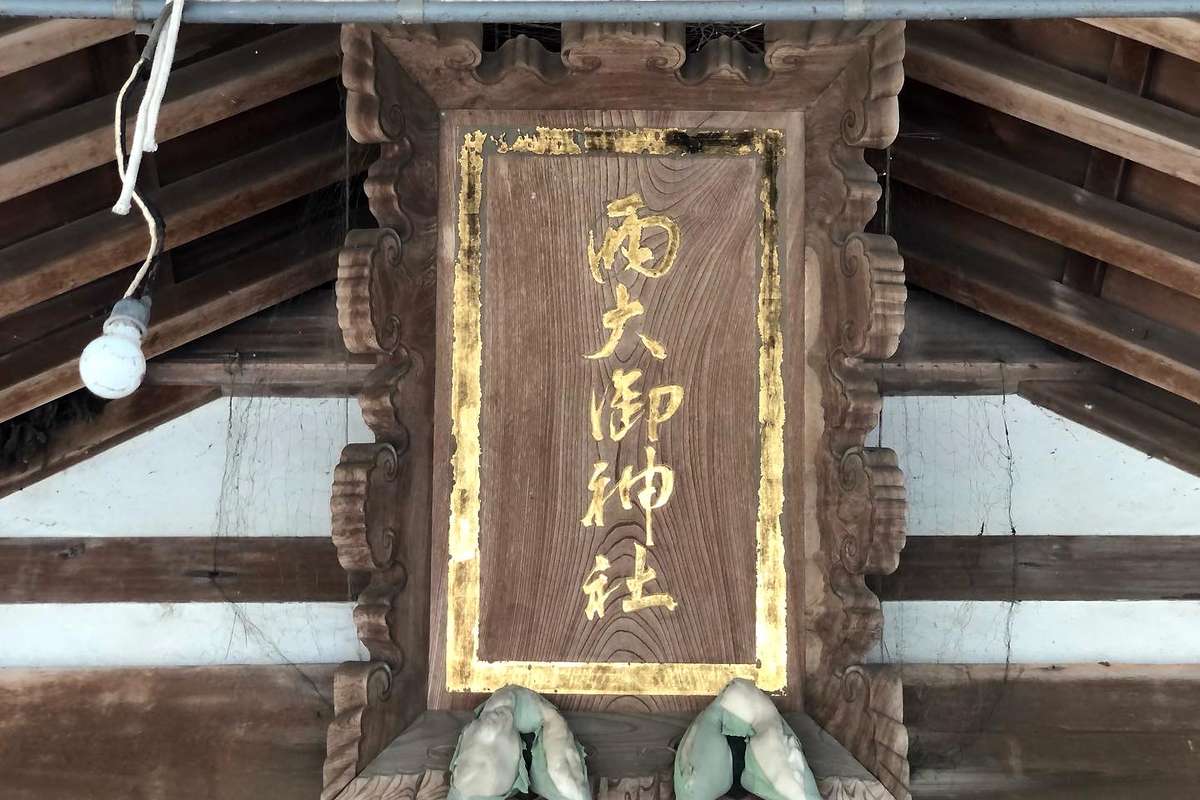 両大御神社